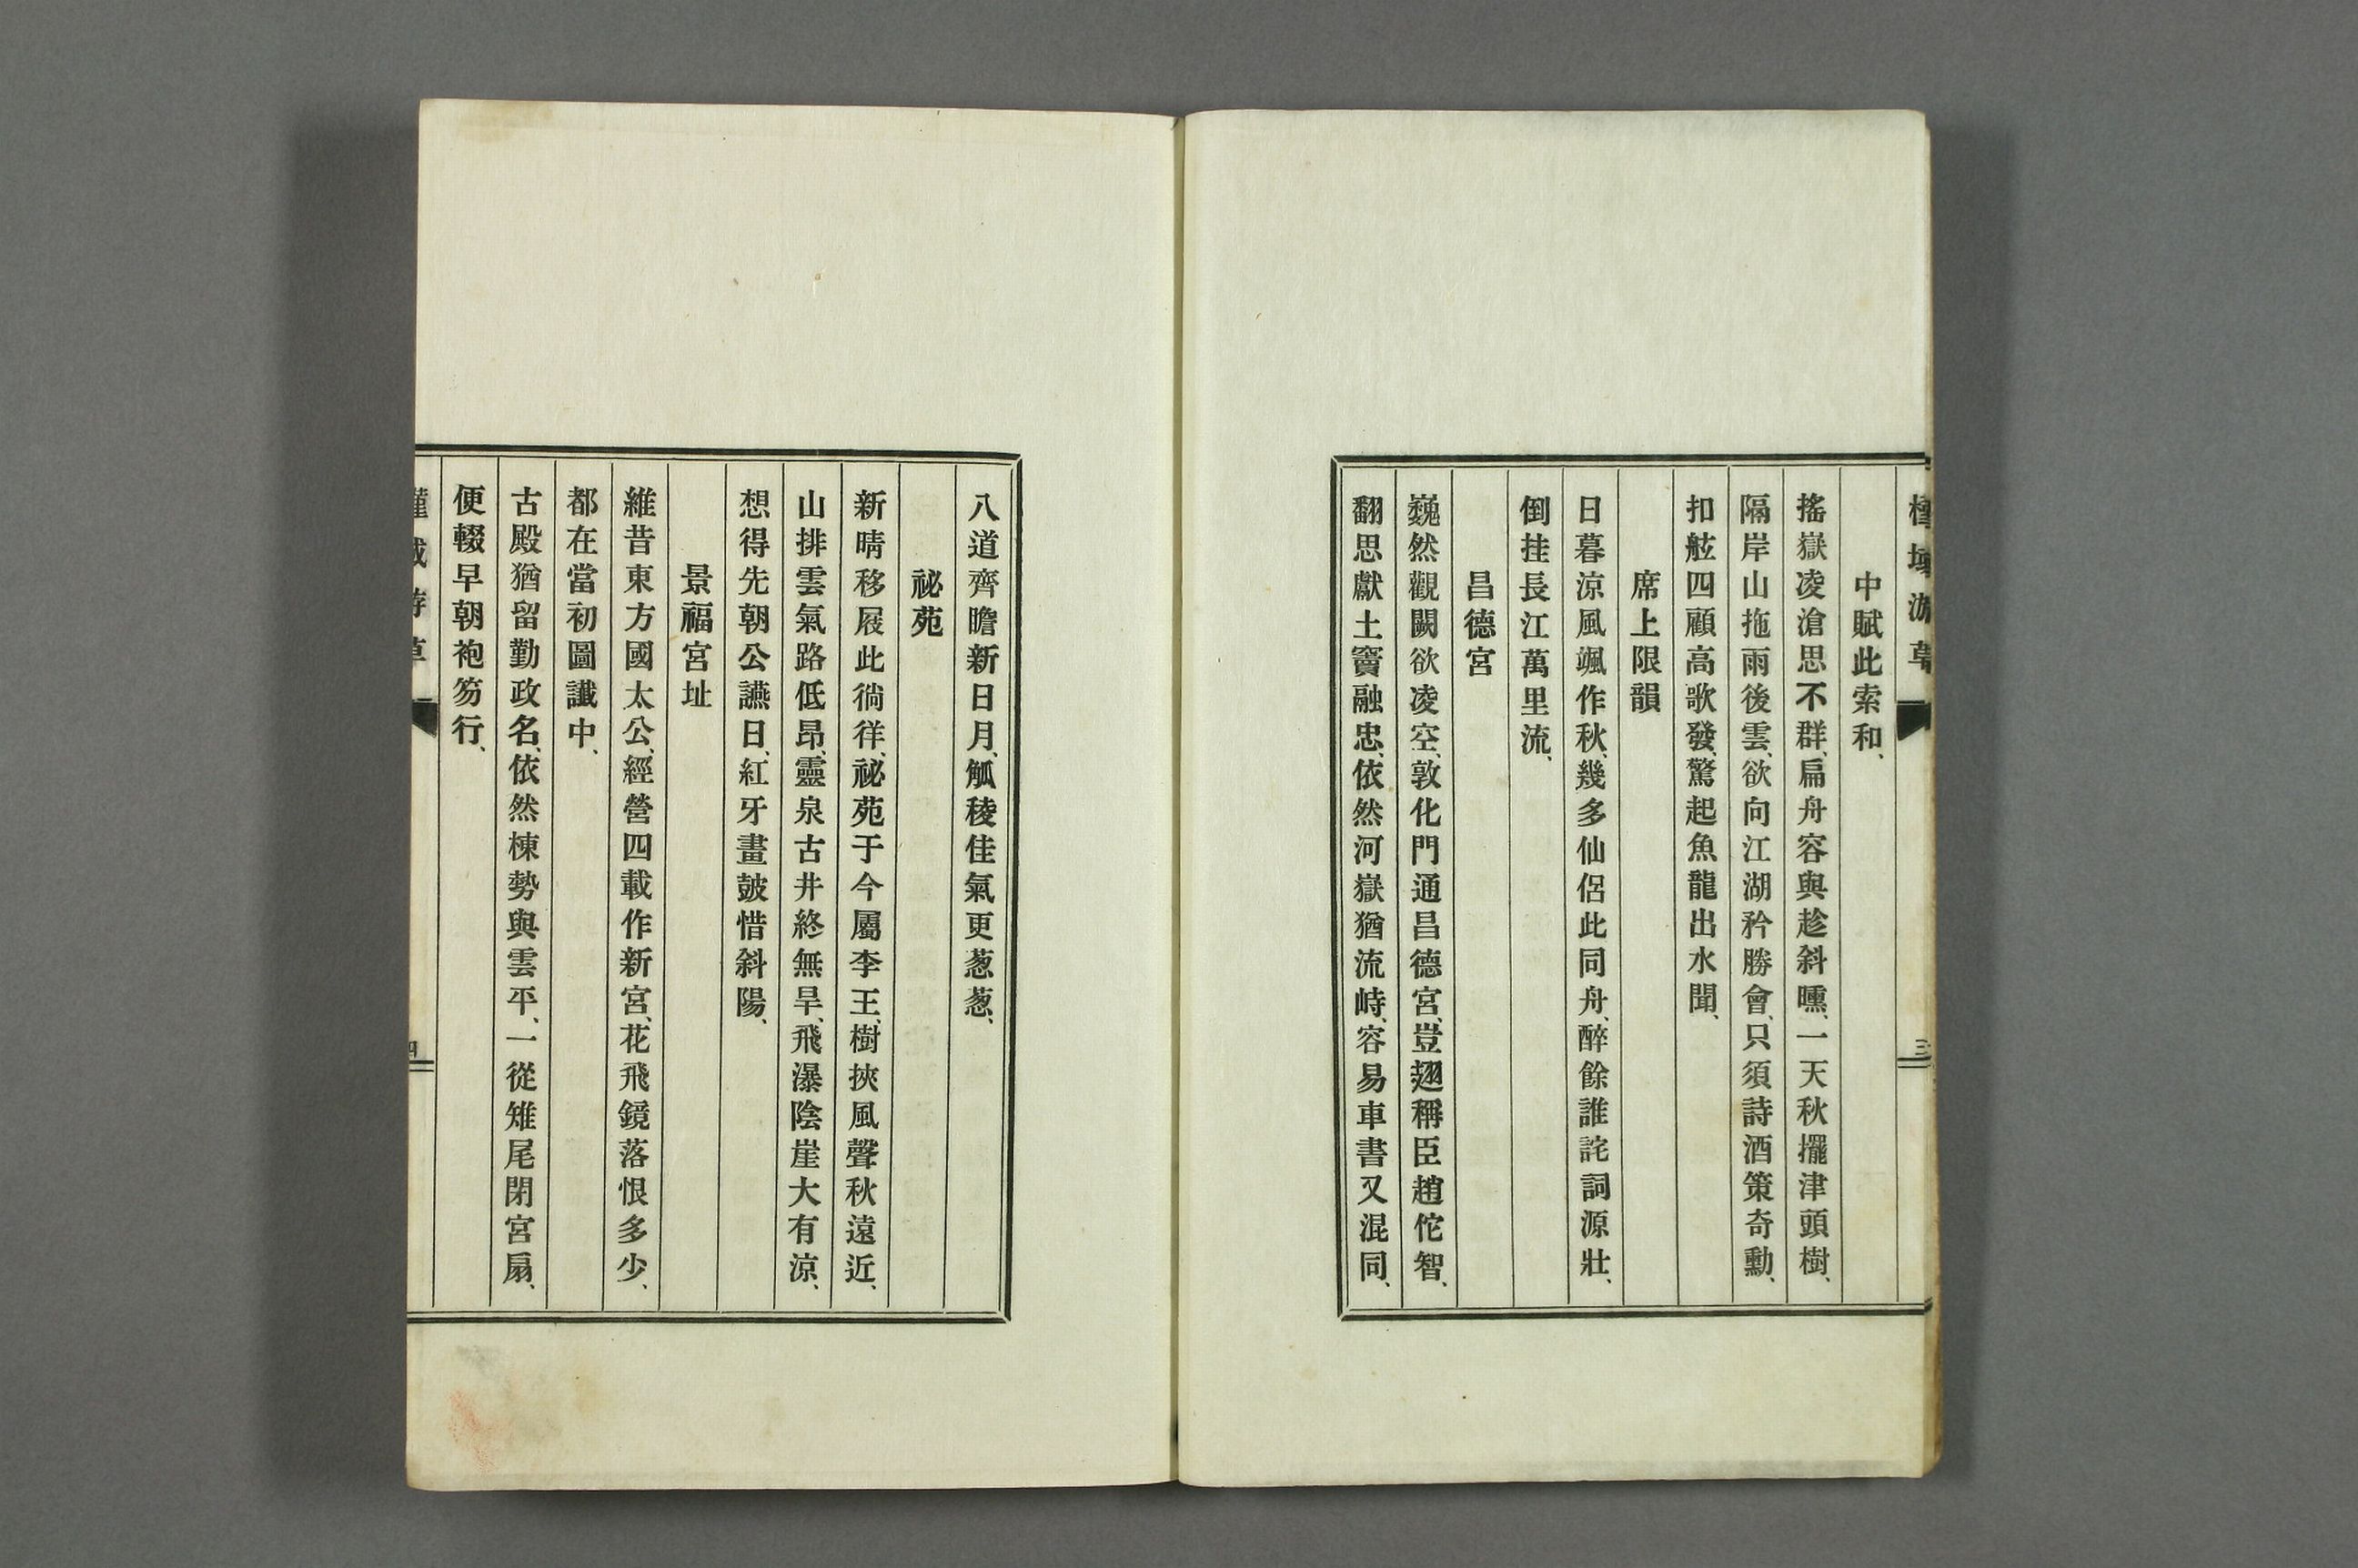 槿域游草
三
中賦此索和、
搖嶽凌滄思不群、扁舟容與趁斜曛、一天秋擺津頭樹、
隔岸山拖雨後雲、欲向江湖矜勝會、只須詩酒策奇勳、
扣舷四顧高歌發、驚起魚龍出水聞、
席上限韻
日暮涼風颯作秋、幾多仙侶此同舟、醉餘誰詫詞源壯、
倒挂長江萬里流、
昌德宮
巍然觀闕欲凌空、敦化門通昌德宮、豈翅稱臣趙佗智、
翻思獻土竇融忠、依然河嶽猶流峙、容易車書又混同、
八道齊瞻新日月、觚稜佳氣更葱葱、
祕苑
新晴移屐此徜徉、祕苑于今屬李王、樹挾風聲秋遠近、
山排雲氣路低昂、靈泉古井終無旱、飛瀑陰崖大有涼、
想得先朝公讌日、紅牙畫皷惜斜陽、
景福宮址
維昔東方國太公、經營四載作新宮、花飛鏡落恨多少、
都在當初圖讖中、
古殿猶留勤政名、依然棟勢與雲平、一從雉尾閉宮扇、
便輟早朝袍笏行、
槿域游草
四